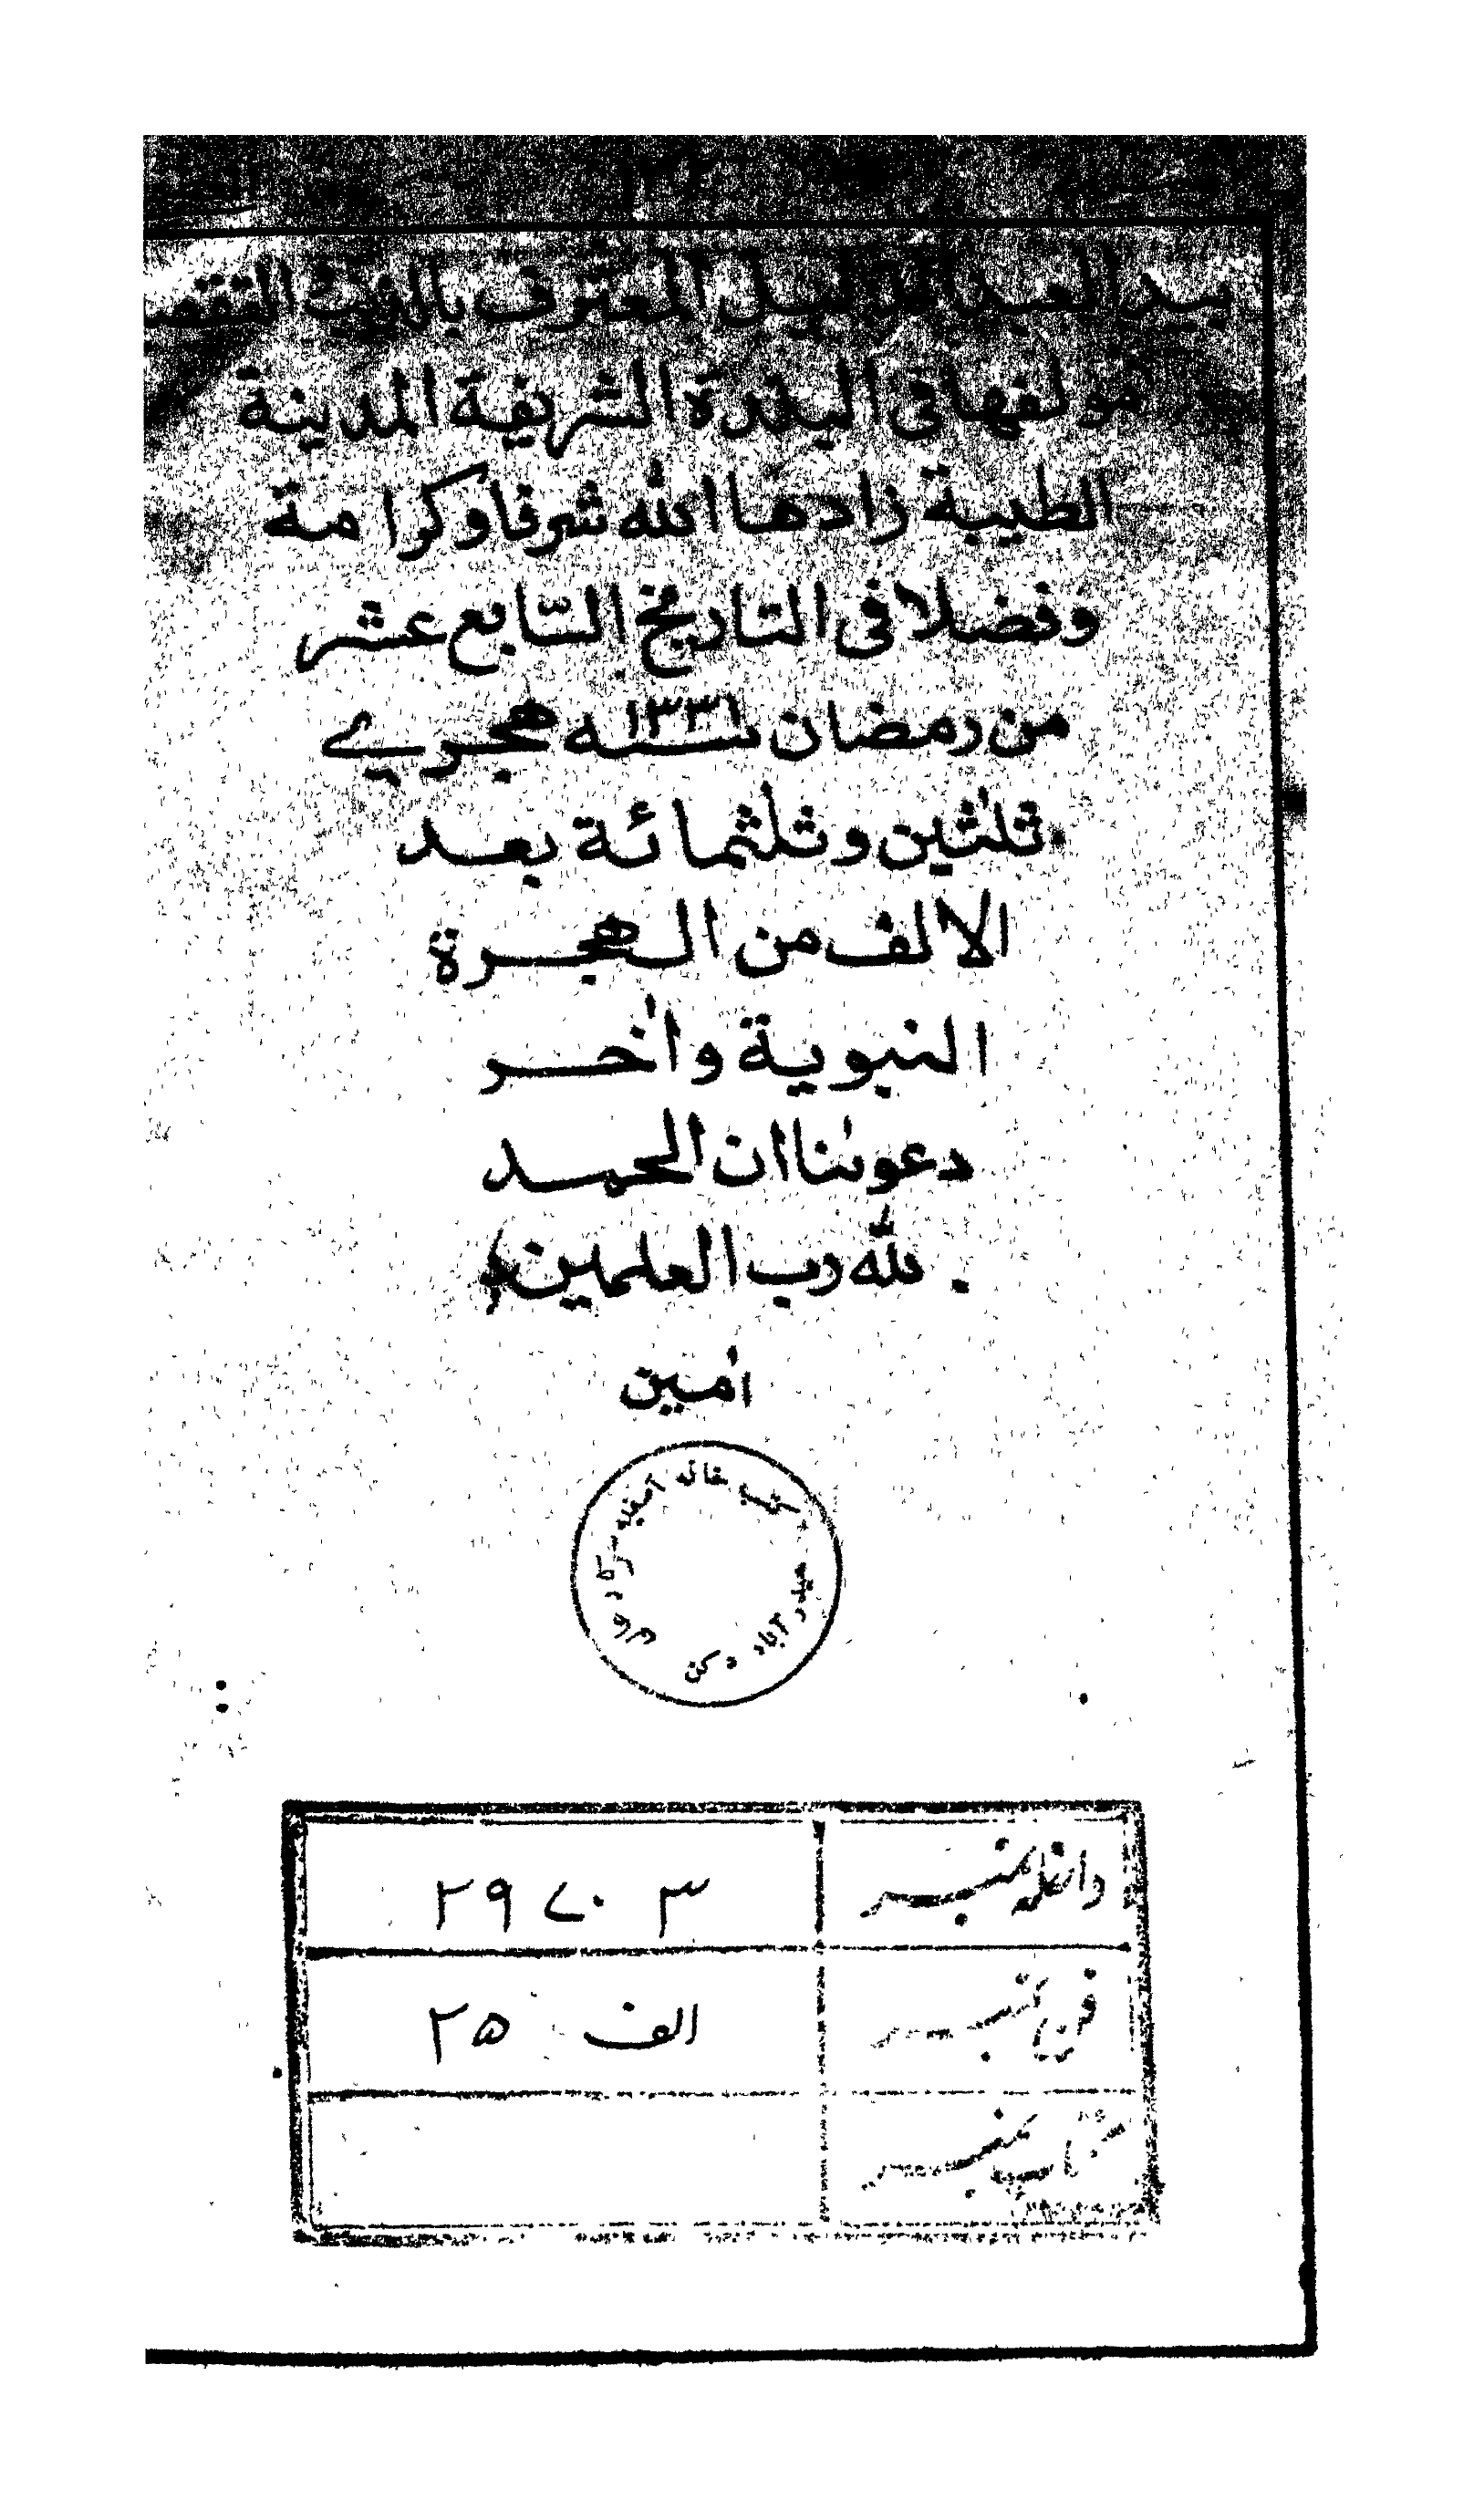 بيد العبد الذليل المعترف بالذنب والتقصير
مولفها فى البلدرة الشريفة المدينة
الطيبة زادها الله شرفا وكرامة
وفضلا فى التاريخ السّابع عشر
من رمضان سنه ١٣٣١ هجرے
ثلٰثين وثلٰثمائة بعد
الالف من الهجرة
النبوية واٰخر
دعوىٰنا ان الحمد
لله رب العٰلمين
اٰمين
كتب خانه آصفيه سركار
حيدرآباد دكن
داخله نمبر ٢٩٧٠٣
فن نمبر الف ٢٥
كتاب نمبر